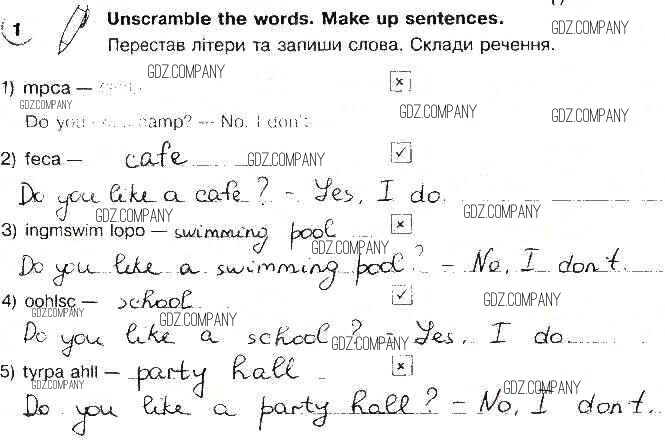 1 Unscramble the words. Make up sentences.
GDZ.COMPANY
Перестав літери та запиши слова. Склади речення.
GDZ.COMPANY
1) mpca — x
GDZ.COMPANY GDZ.COMPANY GDZ.COMPANY
Do you camp? — No, I don't.
2) feca — cafe GDZ.COMPANY ✓
Do you like a cafe? - Yes, I do.
GDZ.COMPANY GDZ.COMPANY
3) ingmswim lopo — swimming pool x
GDZ.COMPANY
Do you like a swimming pool? - No, I don't.
4) oohlsc — school ✓ GDZ.COMPANY
GDZ.COMPANY GDZ.COMPANY
Do you like a school? - Yes, I do.
GDZ.COMPANY
5) tyrpa ahll — party hall x
GDZ.COMPANY GDZ.COMPANY
Do you like a party hall? - No, I don't.